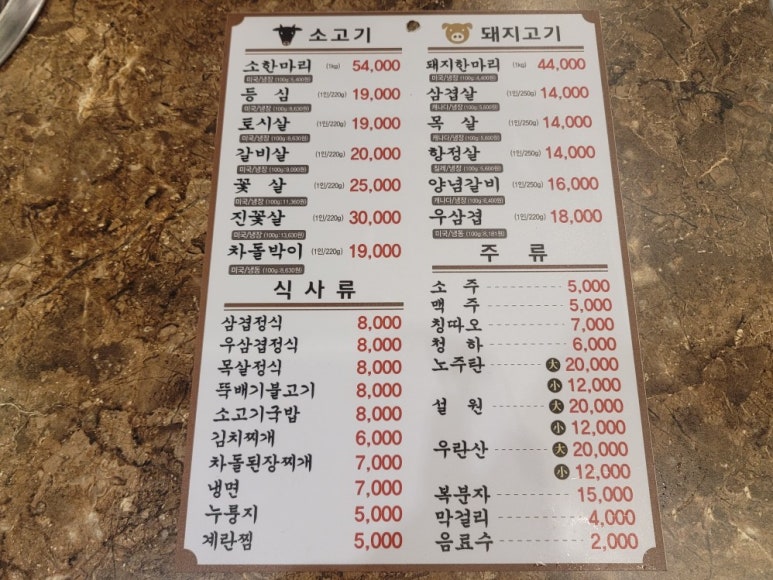 소고기
소한마리 (1kg) 54,000
미국/냉장 (100g:5,400원)
등 심 (1인/220g) 19,000
미국/냉장 (100g:8,630원)
토시살 (1인/220g) 19,000
미국/냉장 (100g:8,630원)
갈비살 (1인/220g) 20,000
미국/냉장 (100g:9,090원)
꽃 살 (1인/220g) 25,000
미국/냉장 (100g:11,360원)
진꽃살 (1인/220g) 30,000
미국/냉장 (100g:13,630원)
차돌박이 (1인/220g) 19,000
미국/냉동 (100g:8,630원)
식사류
삼겹정식 8,000
우삼겹정식 8,000
목살정식 8,000
뚝배기불고기 8,000
소고기국밥 8,000
김치찌개 6,000
차돌된장찌개 7,000
냉면 7,000
누룽지 5,000
계란찜 5,000
돼지고기
돼지한마리 (1kg) 44,000
미국/냉장 (100g:4,400원)
삼겹살 (1인/250g) 14,000
캐나다/냉장 (100g:5,600원)
목 살 (1인/250g) 14,000
캐나다/냉장 (100g:5,600원)
항정살 (1인/250g) 14,000
칠레/냉장 (100g:5,600원)
양념갈비 (1인/250g) 16,000
캐나다/냉장 (100g:6,400원)
우삼겹 (1인/220g) 18,000
미국/냉동 (100g:8,181원)
주 류
소 주 5,000
맥 주 5,000
칭따오 7,000
청 하 6,000
노주탄 大 20,000
小 12,000
설 원 大 20,000
小 12,000
우란산 大 20,000
小 12,000
복분자 15,000
막걸리 4,000
음료수 2,000